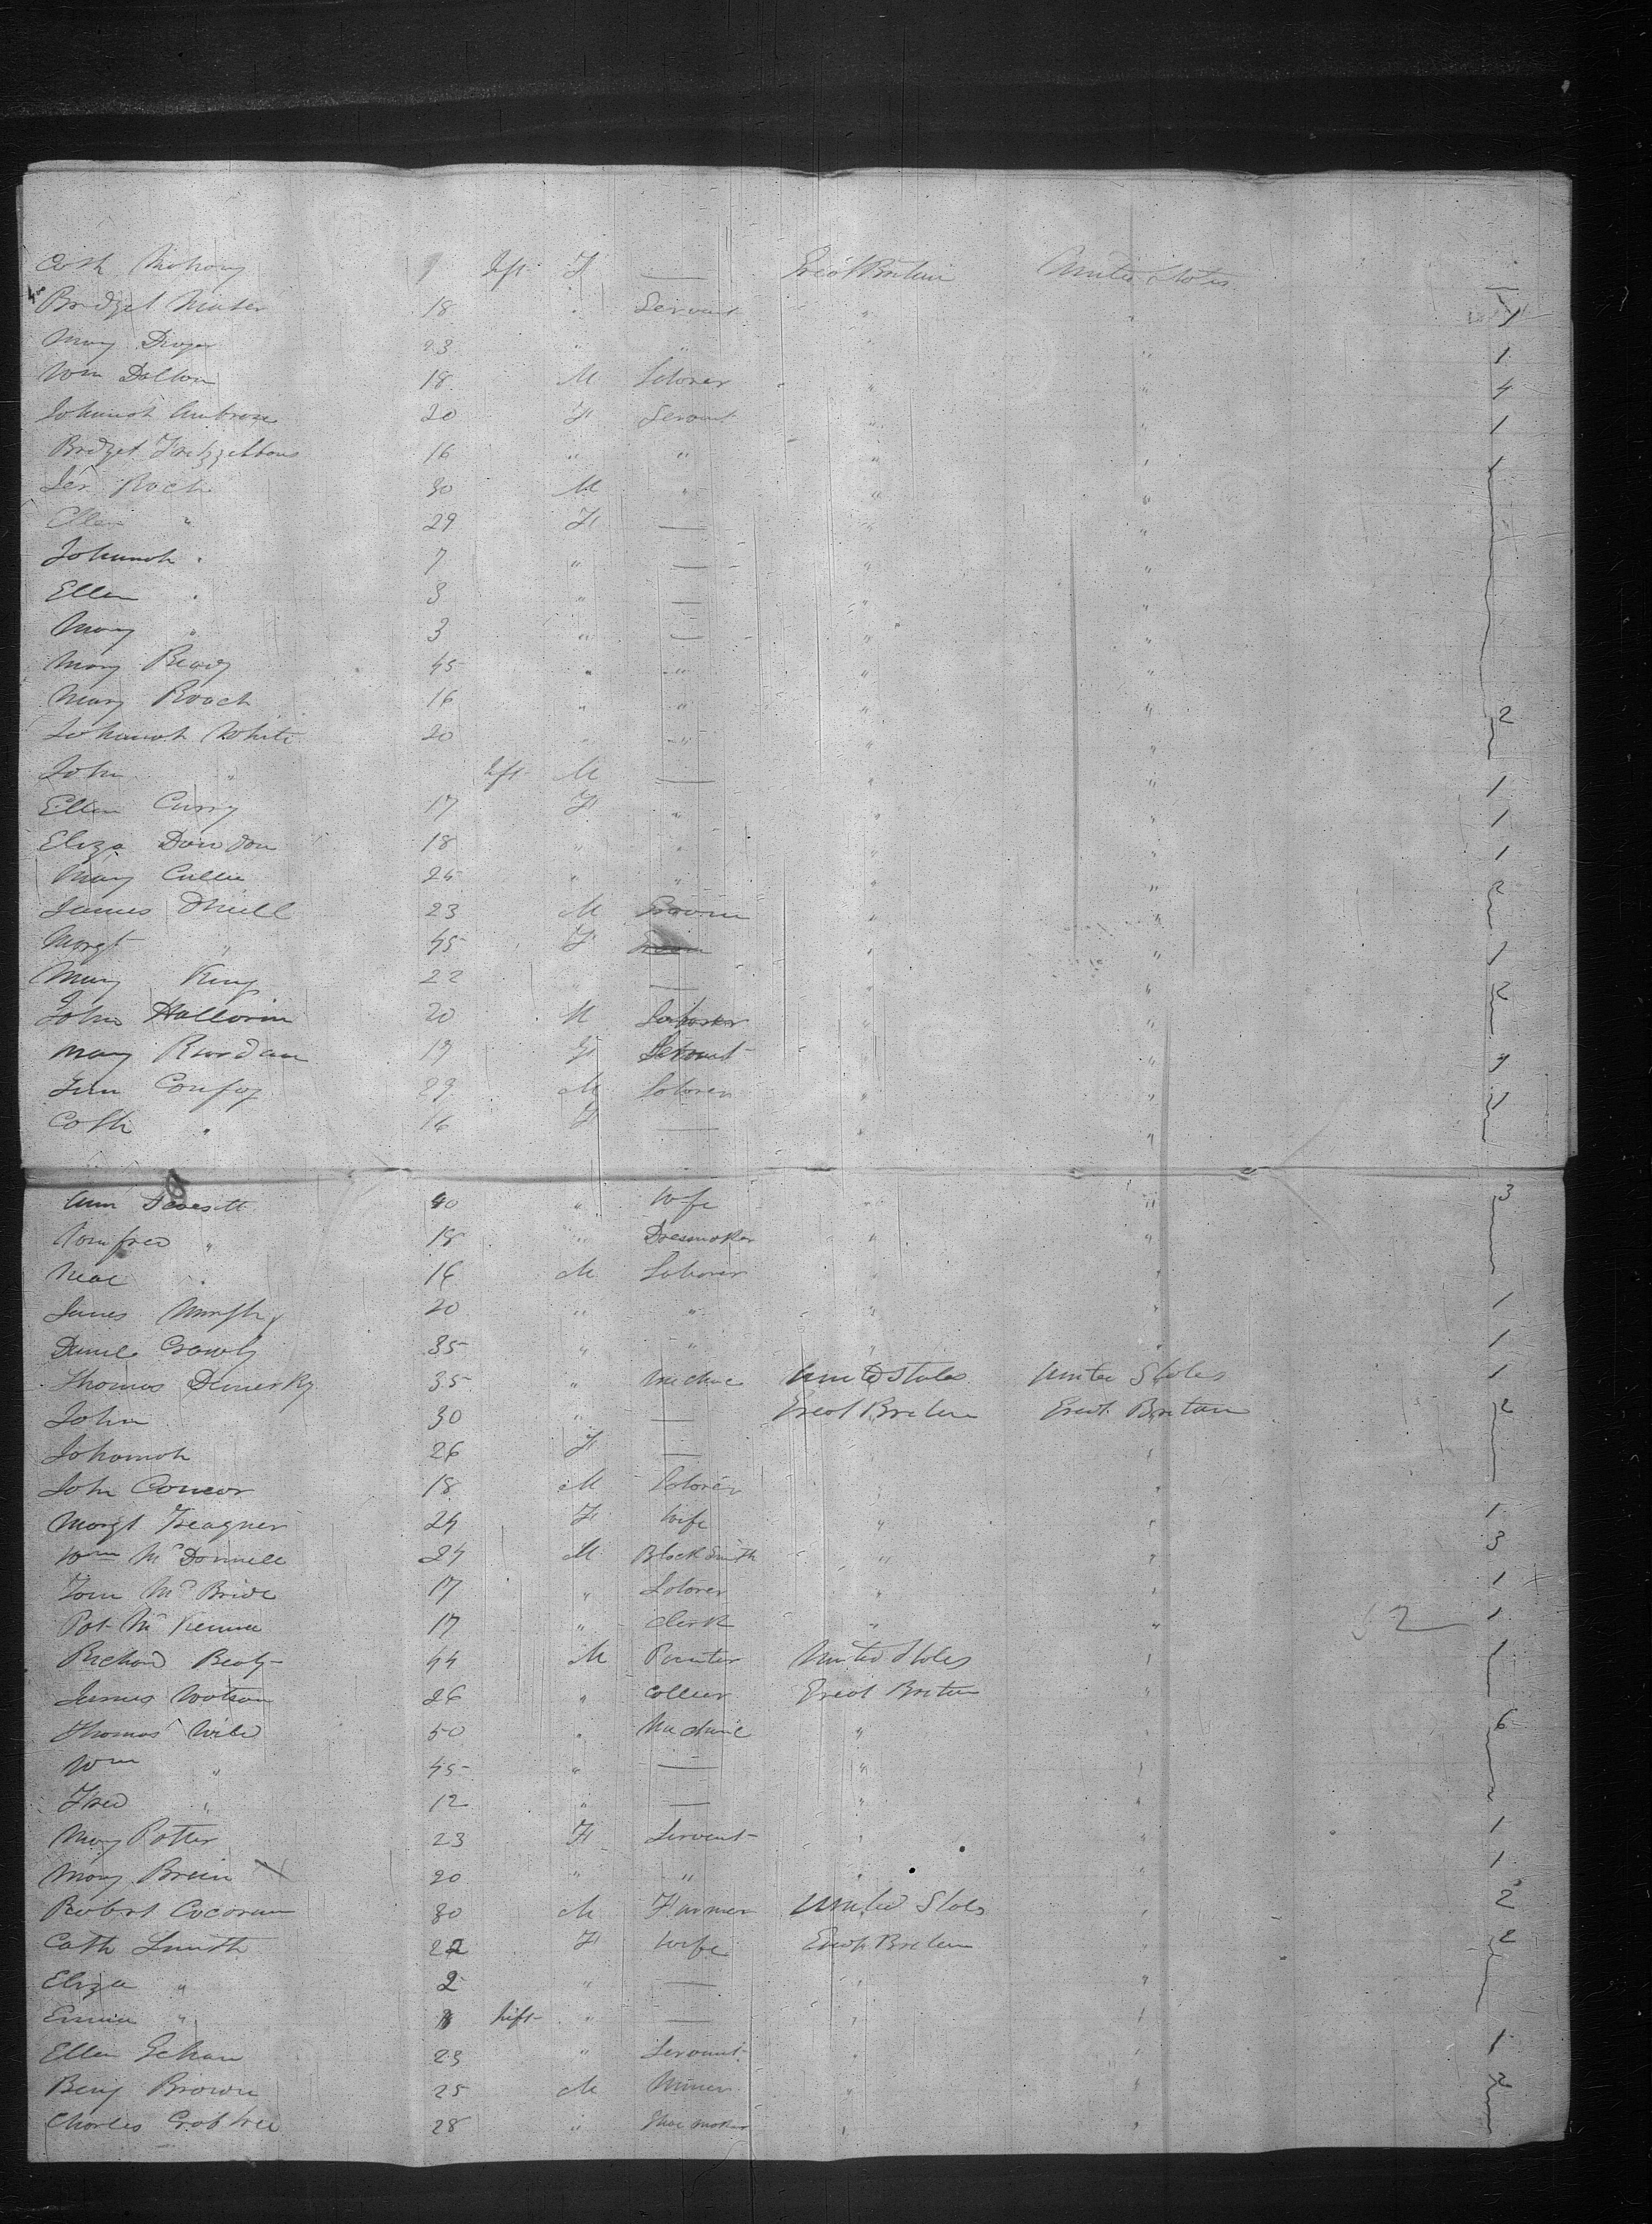 Cath Mahony 9 Inft F — Great Britain United States
Bridget Maher 18 " Servant " " 1
Mary Dwyer 23 " " " " 1
Wm Dalton 18 M Laborer " " 4
Johanah Ambrose 20 F Servant " " 1
Bridget Fitzgibbons 16 " " " " 1
Jer Roch 30 M " " "
Ellen " 29 F — " "
Johanah " 7 " — " "
Ellen " 3 " — " "
Mary " 3 " — " "
Mary Ready 45 " " " "
Mary Roach 16 " " " "
Johanah White 20 " " " " 2
John " Inft M — " "
Ellen Curry 17 F " " " 1
Eliza Dowdon 18 " " " " 1
Mary Cullie 25 " " " " 1
James ONeill 23 M Groom " " 2
Margt " 45 F " "
Mary King 22 " — " " 1
John Hallorin 20 M Laborer " " 2
Mary Riordan 19 F Servant " "
Confoy 29 M Laborer " " 1
Cath " 16 F — " "
Ann 40 " Wife " " 3
Winfred " 18 " Dresmaker " "
Neal " 16 M Laborer " "
James Murphy 20 " " " " 1
Daniel Crowly 35 " " " " 1
Thomas 35 " Mechnic United States United States 1
John 30 " — Great Britain Great Britain 2
Johannah 26 F — " "
John Connor 18 M Laborer " "
Margt Treagner 24 F Wife " " 1
Wm McDonnell 24 M BlackSmith " " 3
Tom McBride 17 " Laborer " " 1
Pat McKenna 17 " Clerk " " 1
Richard Beaty 44 M Painter United States " 1
James Watson 26 " Collier Great Britain "
Thomas Wild 50 " Mechanic " " 6
Wm " 45 " — " "
Fred " 12 " — " "
Mary Potter 23 F Servant " " 1
Mary Brein 20 " " " " 1
Robert Cocoran 30 M Farmer United States " 2
Cath Smith 22 F Wife Great Britain " 2
Eliza " 2 " — " "
Emma " Inft " — " "
Ellen Gehan 23 " Servant " " 1
Benj Brown 25 M Miner " " 2
Charles Crabtree 28 " Shoemaker " "